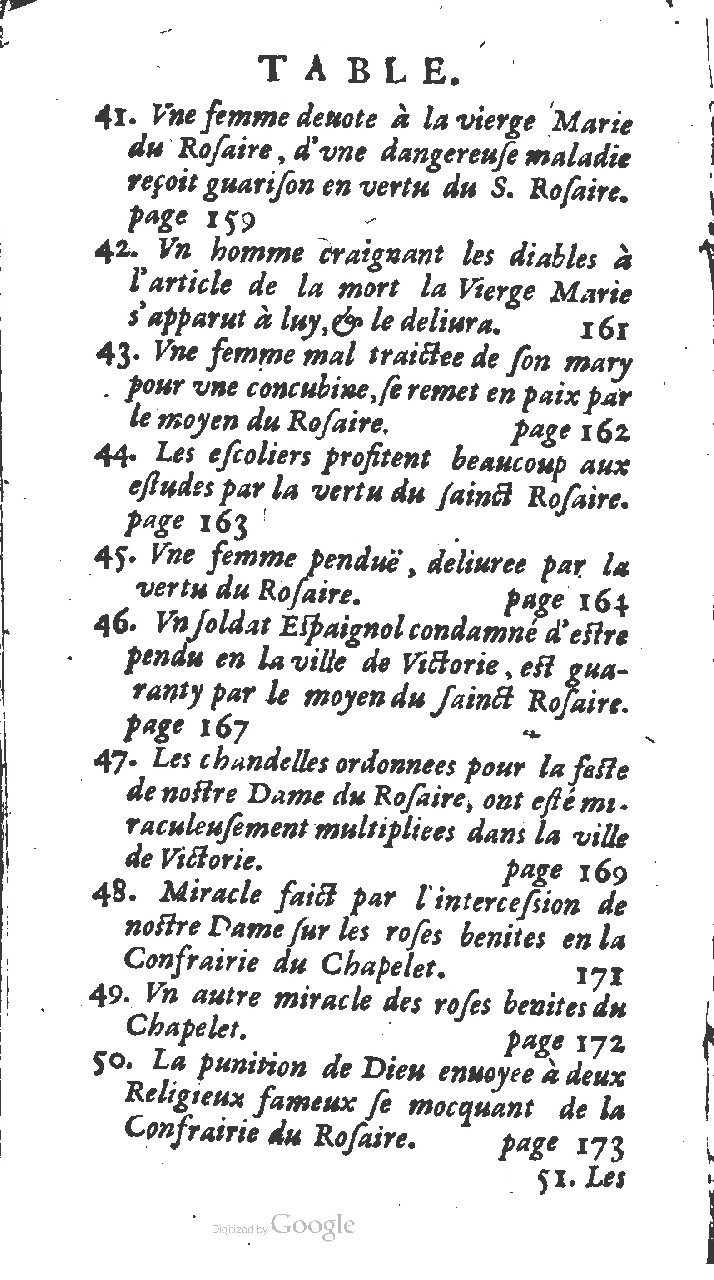 TABLE.
41. Vne femme deuote à la vierge Marie
du Roſaire, d'vne dangereuſe maladie
reçoit guariſon en vertu du S. Roſaire.
page 159
42. Vn homme craignant les diables à
l'article de la mort la Vierge Marie
s'apparut à luy, & le deliura. 161
43. Vne femme mal traictee de ſon mary
pour vne concubine, ſe remet en paix par
le moyen du Roſaire. page 162
44. Les eſcoliers profitent beaucoup aux
eſtudes par la vertu du ſainct Roſaire.
page 163
45. Vne femme penduë, deliuree par la
vertu du Roſaire. page 164
46. Vn ſoldat Eſpaignol condamné d'eſtre
pendu en la ville de Victorie, eſt gua-
ranty par le moyen du ſainct Roſaire.
page 167
47. Les chandelles ordonnees pour la feſte
de noſtre Dame du Roſaire, ont eſté mi-
raculeuſement multipliees dans la ville
de Victorie. page 169
48. Miracle faict par l'interceſsion de
noſtre Dame ſur les roſes benites en la
Confrairie du Chapelet. 171
49. Vn autre miracle des roſes benites du
Chapelet. page 172
50. La punition de Dieu enuoyee à deux
Religieux fameux ſe mocquant de la
Confrairie du Roſaire. page 173
51. Les
Digitized by Google